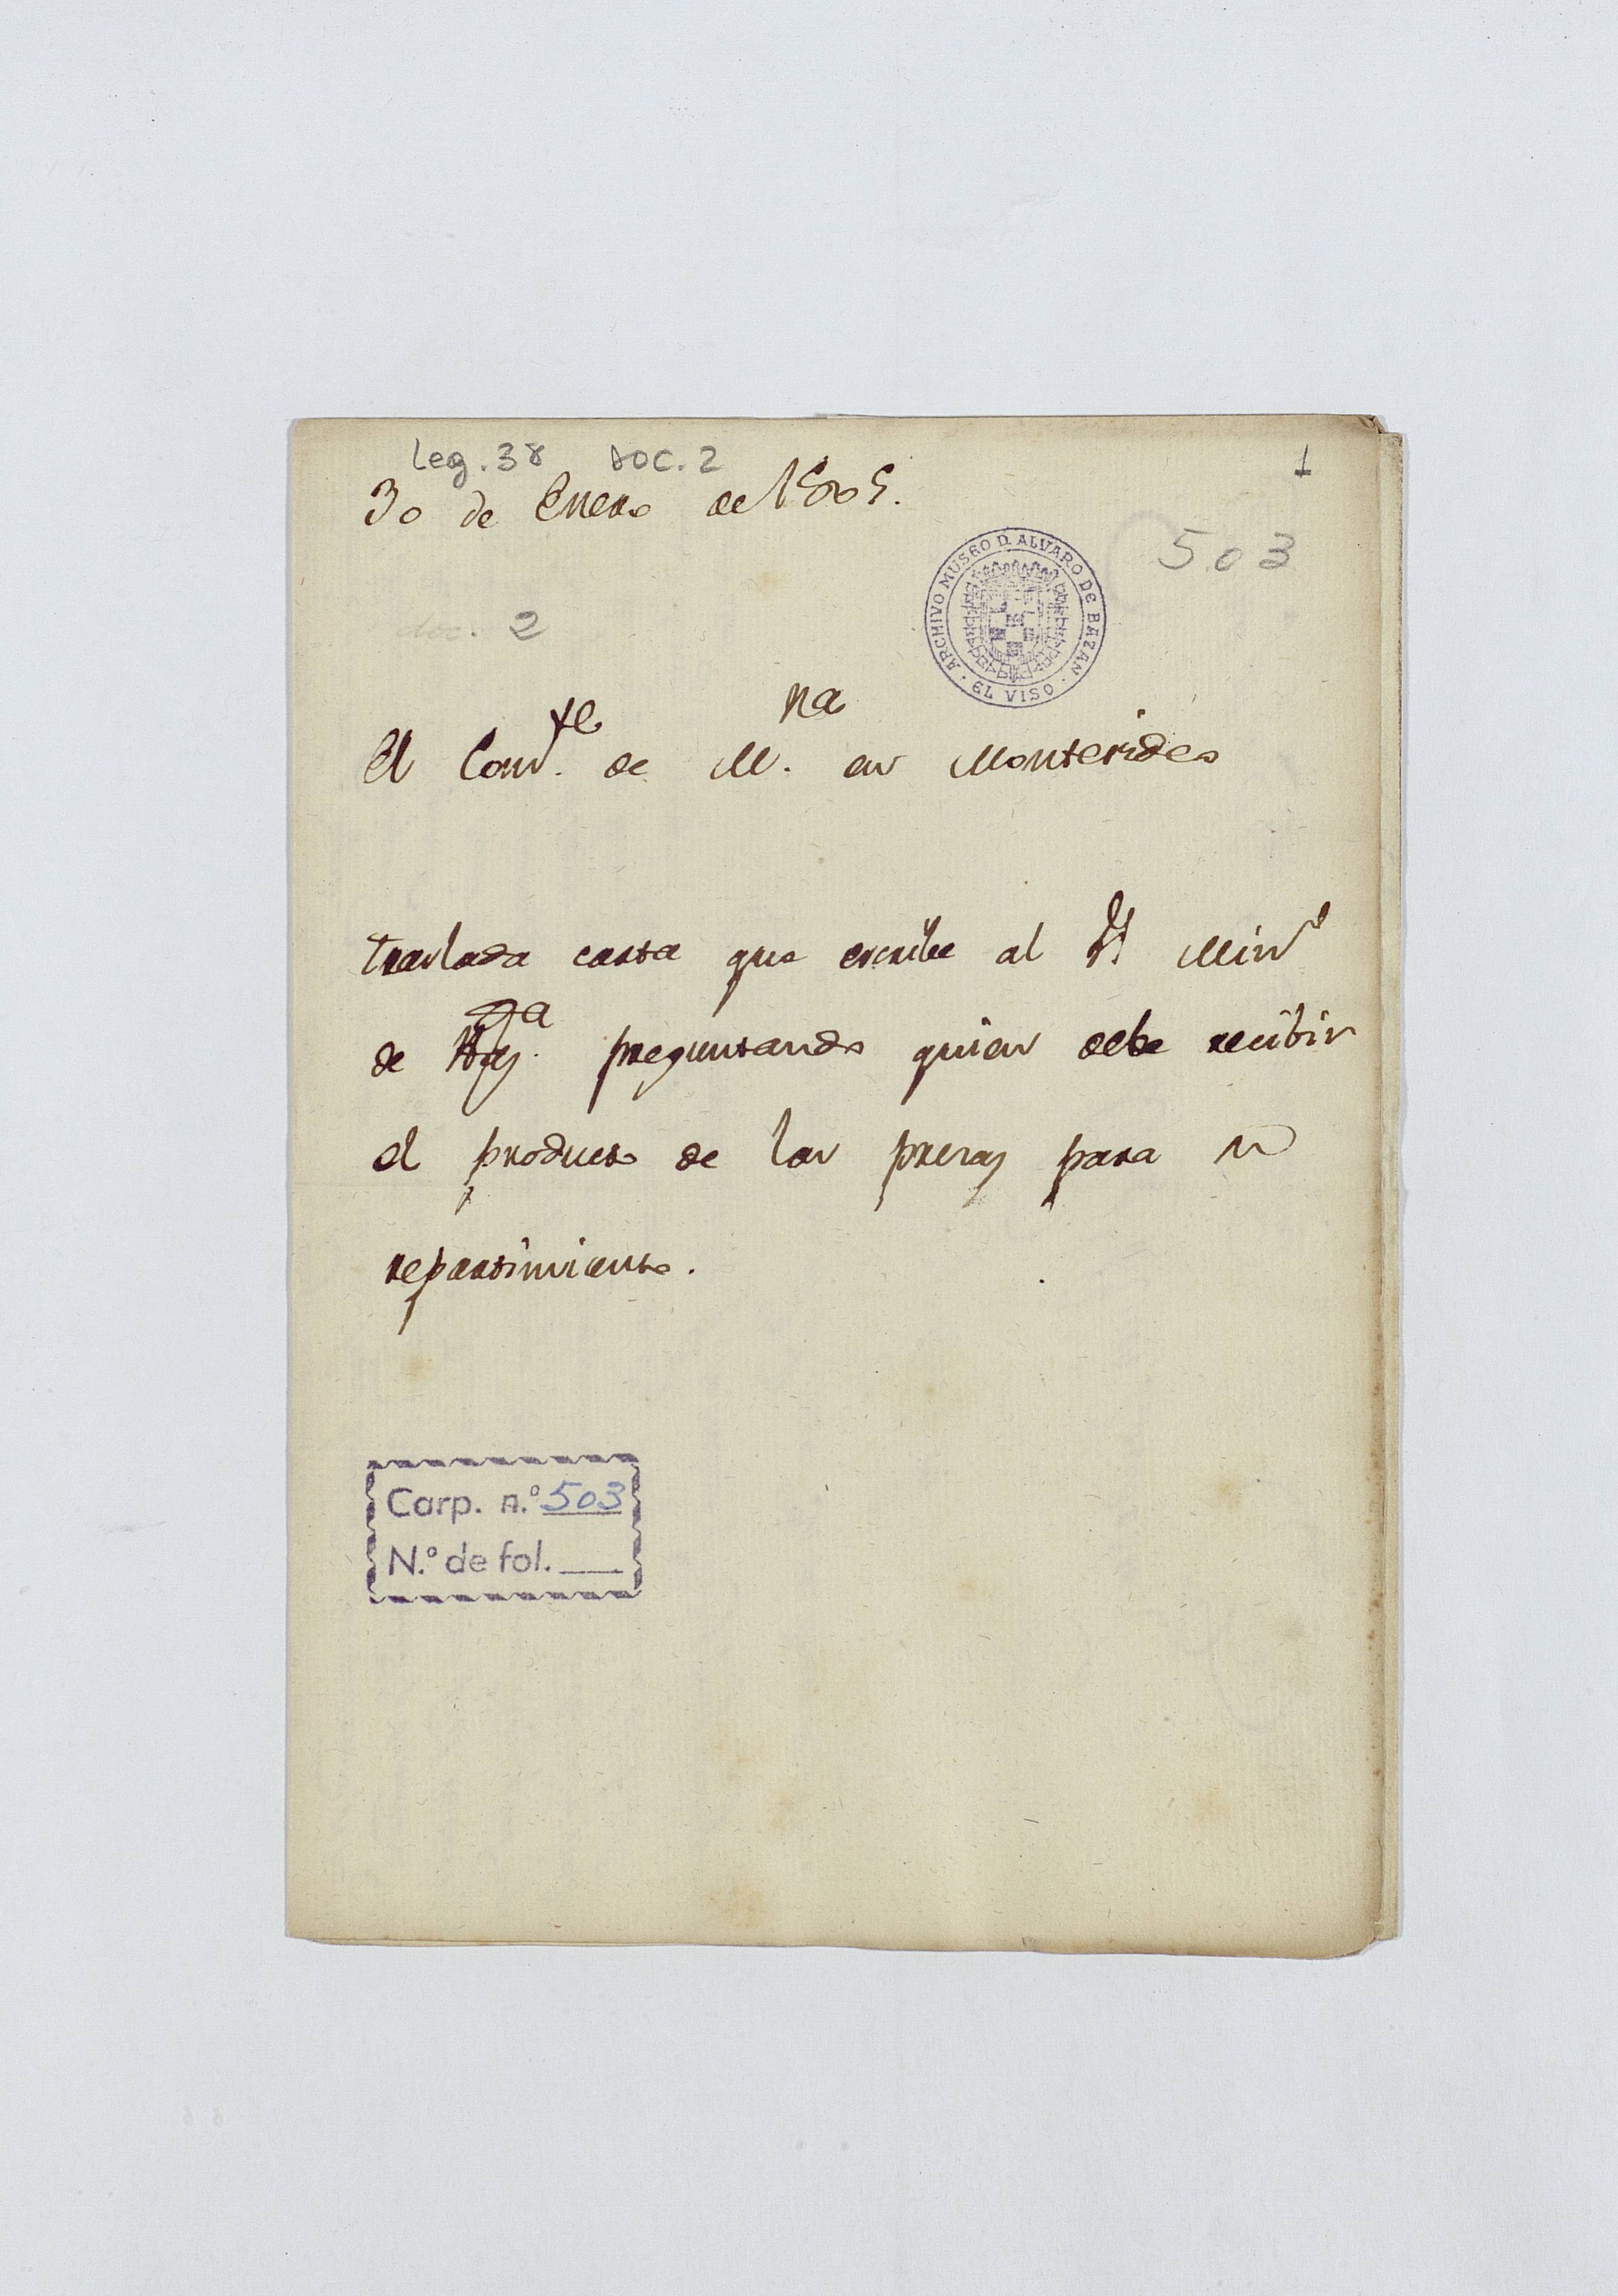 Leg. 38 doc. 2
1
30 de Enero de 1805.
503
ARCHIVO MUSEO D. ALVARO DE BAZAN · EL VISO ·
doc. 2
El Com.te de M.na en Montevideo
traslada carta que escribe al Sr Minro
de Hag.da preguntando quien debe recibir
el producto de las presas para su
repartimiento.
Carp. n.º 503
N.º de fol.